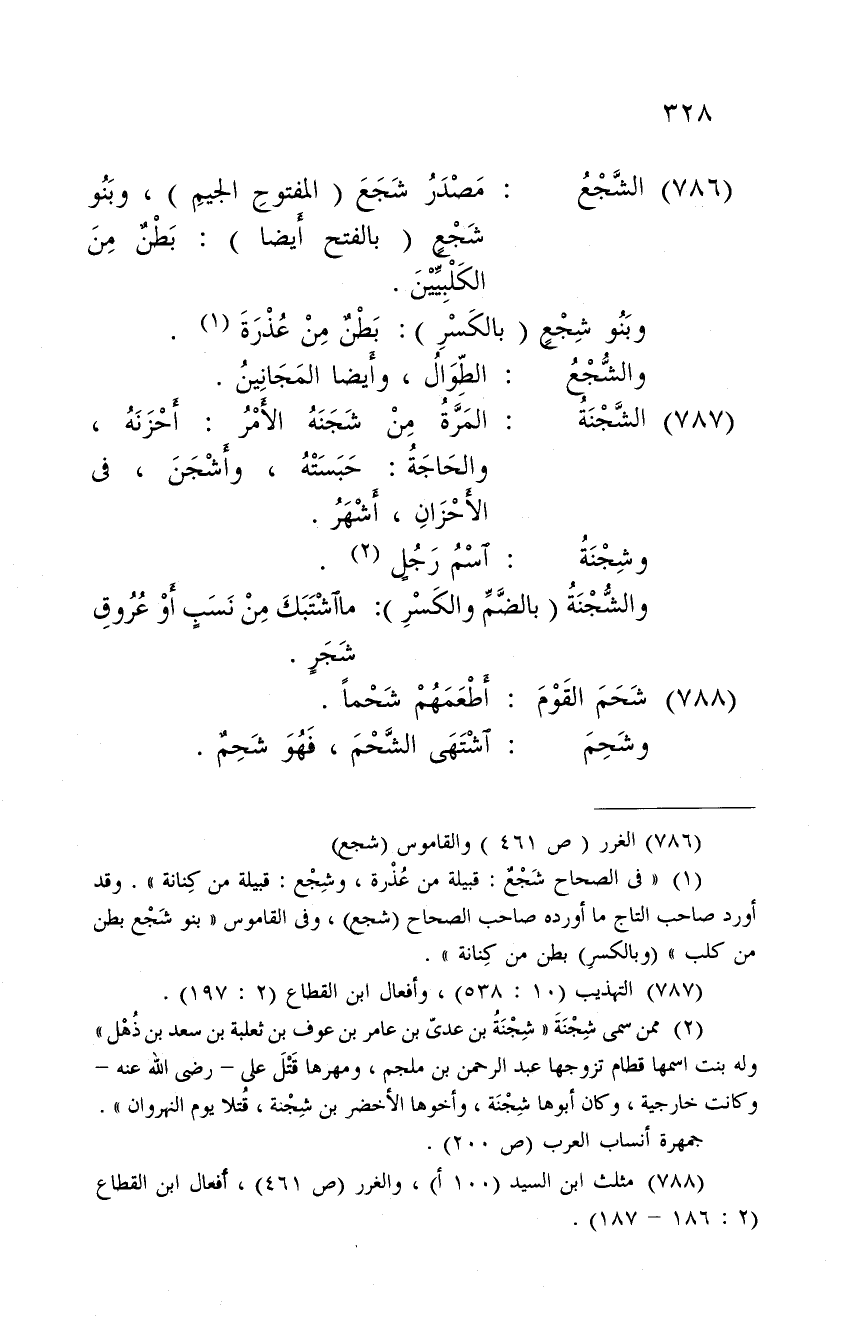 ٣٢٨
(٧٨٦) الشَّجْعُ : مَصْدَرُ شَجَعَ ( المفتوحِ الجيمِ ) ، وبَنُو
شَجْعٍ ( بالفتح أَيضا ) : بَطْنٌ مِنَ
الكَلْبِيِّيْنَ .
وبَنُو شِجْعٍ ( بالكَسْرِ ) : بَطْنٌ مِنْ عُذْرَةَ (١) .
والشُّجْعُ : الطِّوَالُ ، وأَيضا المَجَانِينُ .
(٧٨٧) الشَّجْنَةُ : المَرَّةُ مِنْ شَجَنَهُ الأَمْرُ : أَحْزَنَهُ ،
والحَاجَةُ : حَبَسَتْهُ ، وأَشْجَنَ ، فى
الأَحْزَانِ ، أَشْهَرُ .
وشِجْنَةُ : ٱسْمُ رَجُلٍ (٢) .
والشُّجْنَةُ ( بالضَّمِّ والكَسْرِ ): ماٱشْتَبَكَ مِنْ نَسَبٍ أَوْ عُرُوقِ
شَجَرٍ .
(٧٨٨) شَحَمَ القَوْمَ : أَطْعَمَهُمْ شَحْماً .
وشَحِمَ : ٱشْتَهَى الشَّحْمَ ، فَهُوَ شَحِمٌ .
(٧٨٦) الغرر ( ص ٤٦١ ) والقاموس (شجع)
(١) « فى الصحاح شَجْعٌ : قبيلة من عُذْرة ، وشِجْع : قبيلة من كِنانة » . وقد
أورد صاحب التاج ما أورده صاحب الصحاح (شجع) ، وفى القاموس « بنو شَجْع بطن
من كلب » (وبالكسرِ) بطن من كِنانة » .
(٧٨٧) التهذيب (١٠ : ٥٣٨) ، وأفعال ابن القطاع (٢ : ١٩٧) .
(٢) ممن سمى شِجْنَةَ « شِجْنَةُ بن عدىّ بن عامر بن عوف بن ثعلبة بن سعد بن ذُهْل »
وله بنت اسمها قطام تزوجها عبد الرحمن بن ملجم ، ومهرها قَتْلَ على – رضى الله عنه –
وكانت خارجية ، وكان أبوها شِجْنَة ، وأخوها الأخضر بن شِجْنة ، قُتلا يوم النهروان » .
جمهرة أنساب العرب (ص ٢٠٠) .
(٧٨٨) مثلث ابن السيد (١٠٠ أ) ، والغرر (ص ٤٦١) ، أفعال ابن القطاع
(٢ : ١٨٦ – ١٨٧) .